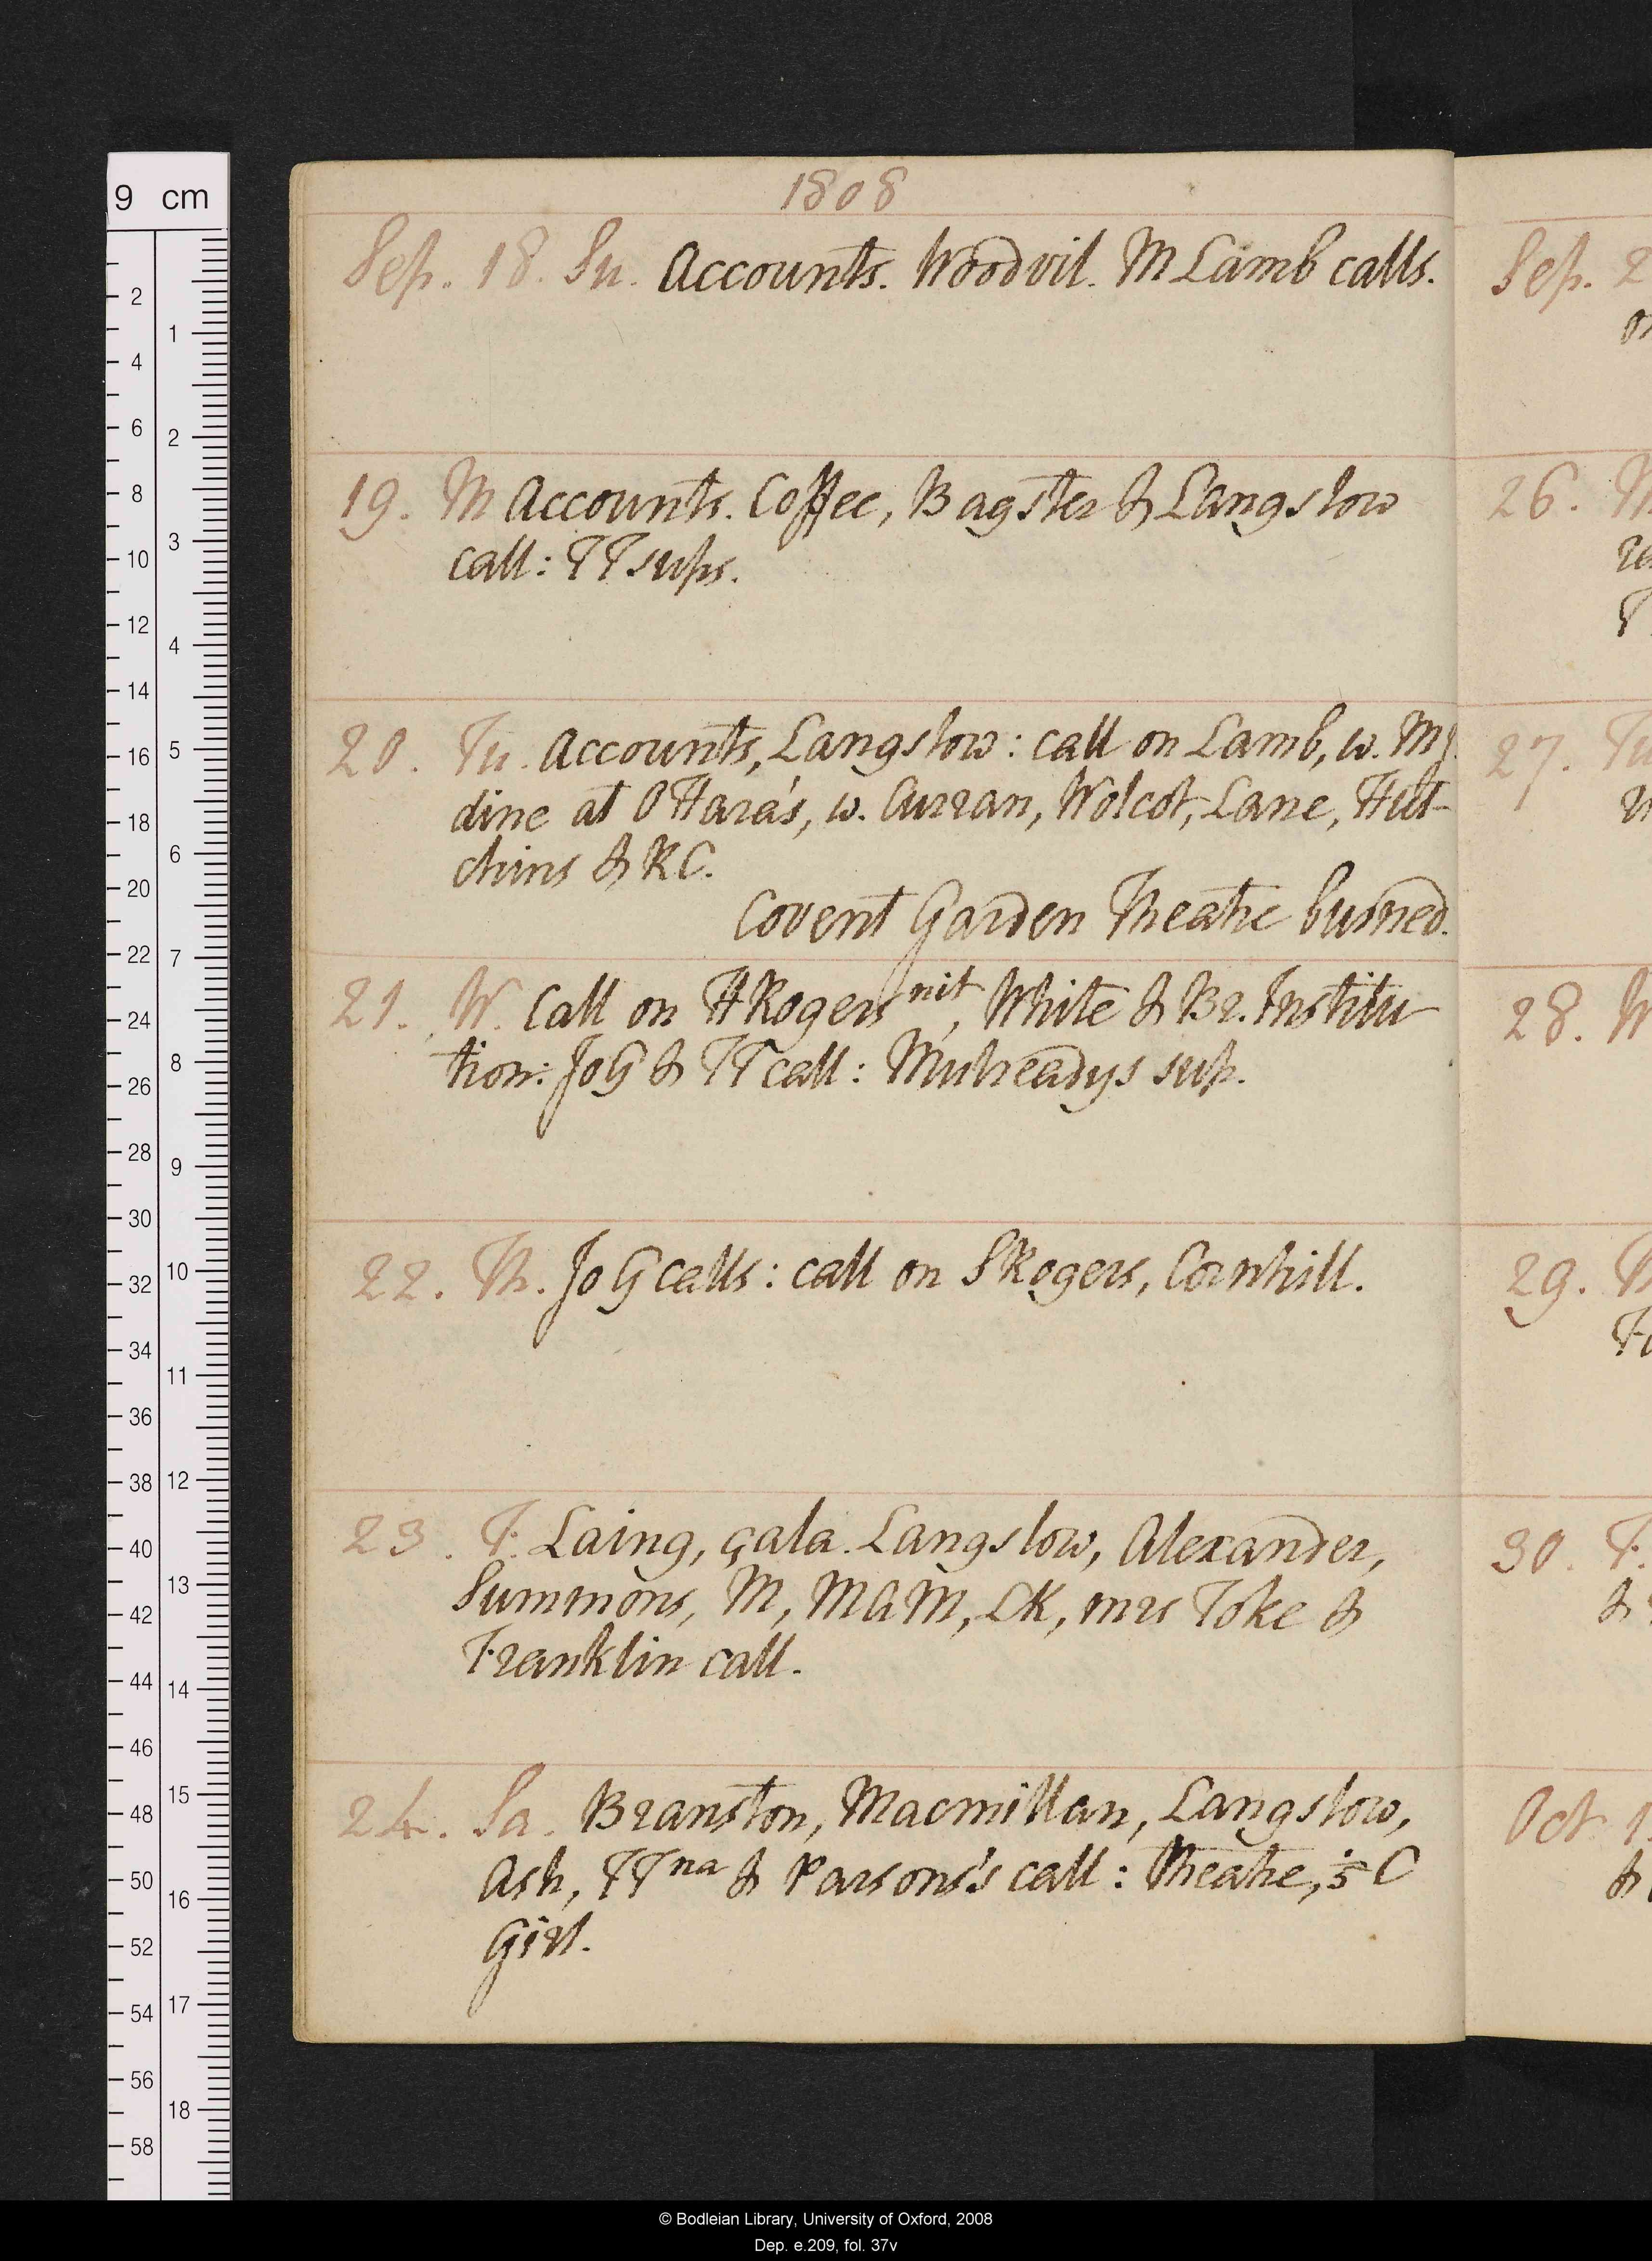 1808
Sep. 18. Su. Accounts. Woodvil. M Lamb calls.
19. M Accounts. Coffee, Bagster & Langslow
call: TT sups.
20. Tu. Accounts, Langslow: call on Lamb, w. MJ.
dine at O Hara's, w. Curran, Wolcot, Lane, Hut-
chins & RC.
Covent Garden Theatre burned.
21. W. Call on H Rogers nit, White & Br. Institu-
tion: Jo G & TT call: Mulreadys sup.
22. Th. Jo G calls: call on S Rogers, Cornhill.
23. F. Laing, çala. Langslow, Alexander,
Summons, M, MAM, LK, mrs Toke &
Franklin call.
24. Sa. Branston, Macmillan, Langslow,
Ash, TTna & Parsons's call: Theatre, C
Girl.
Sep. 2
26. M
27. Tu
28. W
29. Th
30. F.
&
Oct 1
&
9 cm
2
4
6
8
10
12
14
16
18
20
22
24
26
28
30
32
34
36
38
40
42
44
46
48
50
52
54
56
58
1
2
3
4
5
6
7
8
9
10
11
12
13
14
15
16
17
18
© Bodleian Library, University of Oxford, 2008
Dep. e.209, fol. 37v